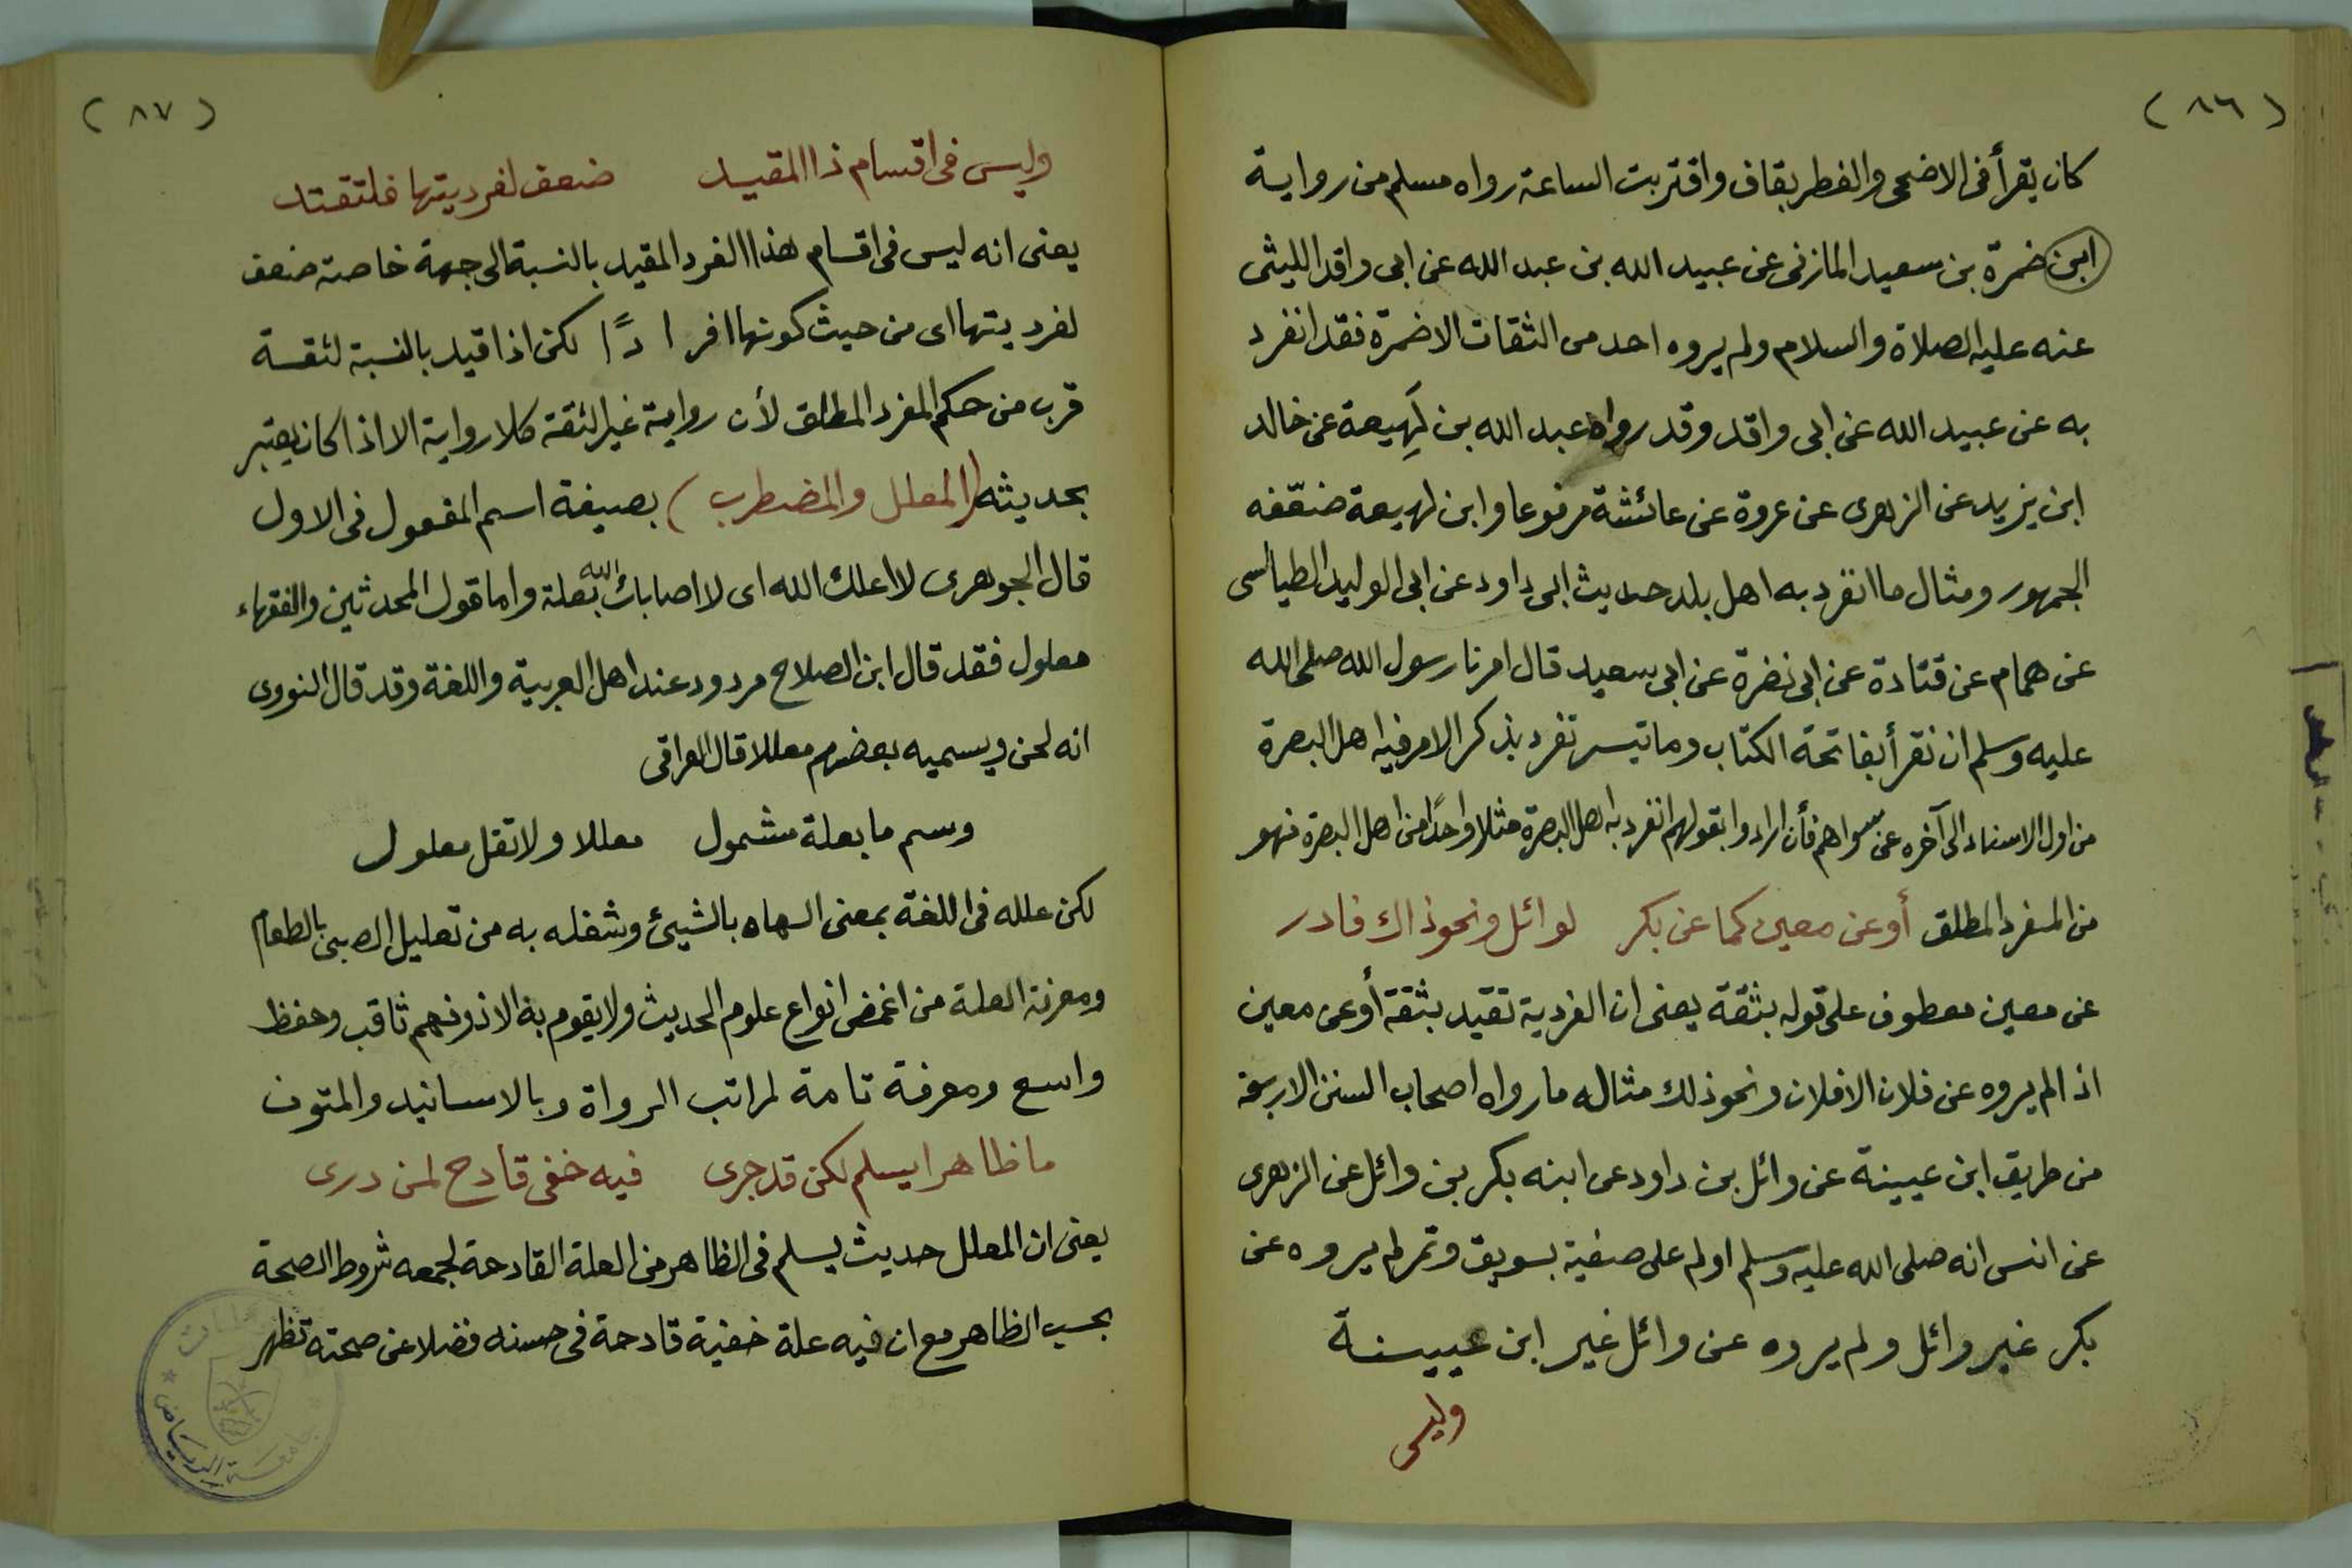 (٨٦)
كان يقرأ فى الاضحى والفطر بقاف واقتربت الساعة رواه مسلم من رواية
ابن ضمرة بن سعيد المازنى عن عبيد الله بن عبد الله عن ابى واقد الليثى
عنه عليه الصلاة والسلام ولم يروه احد من الثقات الا ضمرة فقد انفرد
به عن عبيد الله عن ابى واقد وقد رواه عبد الله بن لَهِيعة عن خالد
ابن يزيد عن الزهرى عن عروة عن عائشة مرفوعا وابن لهيعة ضعّفه
الجمهور ومثال ما انفرد به اهل بلد حديث ابى داود عن ابى الوليد الطيالسى
عن همام عن قتادة عن ابى نضرة عن ابى سعيد قال امرنا رسول الله صلى الله
عليه وسلم ان نقرأ بفاتحة الكتاب وما تيسر تفرد بذكر الامر فيه اهل البصرة
من اول الاسناد الى آخره عن سواهم فأن ارادوا بقولهم انفرد به اهل البصرة مثلا واحدًا من اهل البصرة فهو
من المفرد المطلق أو عن معين كما عن بكر لوائل ونحو ذاك فادر
عن معين معطوف على قوله بثقة يعنى ان الفردية تقيد بثقة أو عن معين
اذا لم يروه عن فلان الا فلان ونحو ذلك مثاله ما رواه اصحاب السنن الاربعة
من طريق ابن عيينة عن وائل بن داود عن ابنه بكر بن وائل عن الزهرى
عن انس انه صلى الله عليه وسلم اولم على صفية بسويق وتمر لم يروه عن
بكر غير وائل ولم يروه عن وائل غير ابن عيينة
وليس
(٨٧)
وليس فى اقسام ذا المقيد ضعف لفرديتها فلتقتد
يعنى انه ليس فى اقسام هذا الفرد المقيد بالنسبة الى جهة خاصة ضعف
لفرديتها اى من حيث كونها افرادًا لكن اذا قيد بالنسبة لثقة
قرب من حكم المفرد المطلق لأن رواية غير الثقة كلا رواية الا اذا كان يعتبر
بحديثه (المعلل والمضطرب) بصيغة اسم المفعول فى الاول
قال الجوهرى لا اعلك الله اى لا اصابك الله بعلة واما قول المحدثين والفقهاء
معلول فقد قال ابن الصلاح مردود عند اهل العربية واللغة وقد قال النووى
انه لحن ويسميه بعضهم معللا قال العراقى
وسم ما بعلة مشمول معللا ولا تقل معلول
لكن علله فى اللغة بمعنى الهاه بالشيئ وشغله به من تعليل الصبى بالطعام
ومعرفة العلة من اغمض انواع علوم الحديث ولا يقوم به الا ذو فهم ثاقب وحفظ
واسع ومعرفة تامة لمراتب الرواة وبالاسانيد والمتون
ما ظاهرا يسلم لكن قد جرى فيه خفى قادح لمن درى
يعنى ان المعلل حديث يسلم فى الظاهر من العلة القادحة لجمعه شروط الصحة
بحسب الظاهر مع ان فيه علة خفية قادحة فى حسنه فضلا عن صحته تظهر
جامعة الرياض